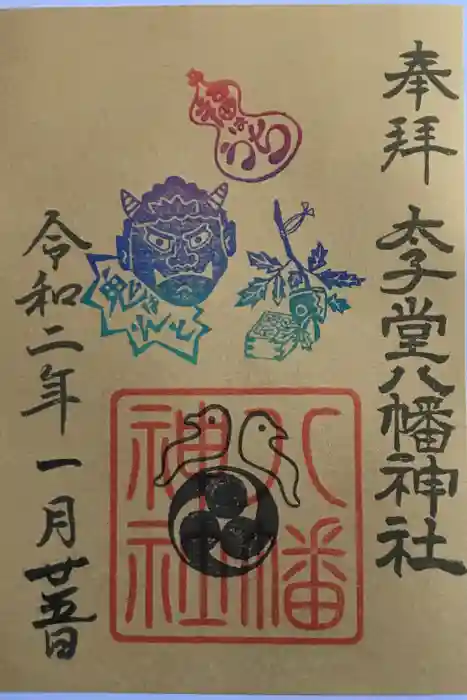 奉拝
太子堂八幡神社
福はうち
鬼は外
八幡
神社
令和二年一月廿五日